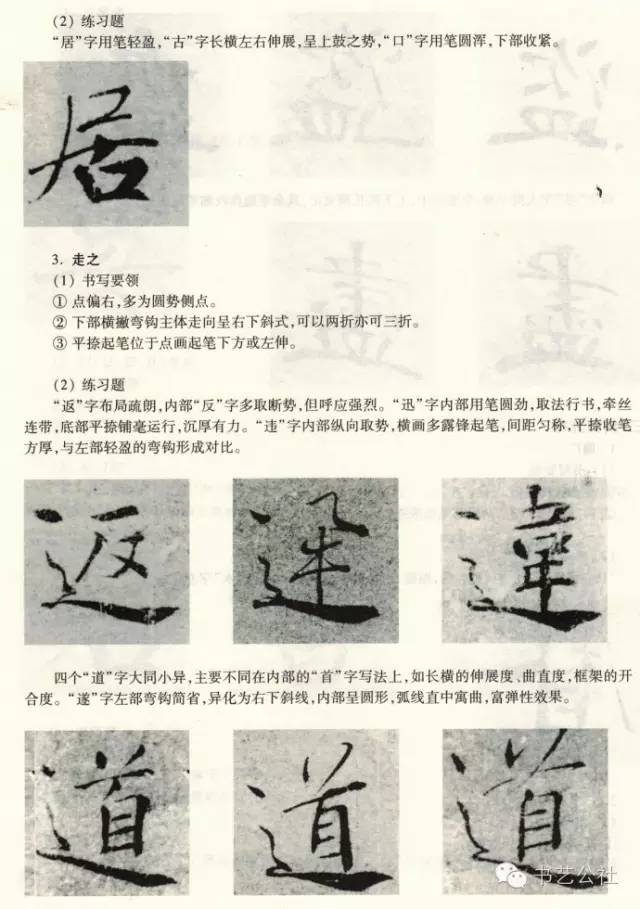 (2) 练习题
“居”字用笔轻盈,“古”字长横左右伸展,呈上鼓之势,“口”字用笔圆浑,下部收紧。
居
3. 走之
(1) 书写要领
① 点偏右,多为圆势侧点。
② 下部横撇弯钩主体走向呈右下斜式,可以两折亦可三折。
③ 平捺起笔位于点画起笔下方或左伸。
(2) 练习题
“返”字布局疏朗,内部“反”字多取断势,但呼应强烈。“迅”字内部用笔圆劲,取法行书,牵丝
连带,底部平捺铺毫运行,沉厚有力。“违”字内部纵向取势,横画多露锋起笔,间距匀称,平捺收笔
方厚,与左部轻盈的弯钩形成对比。
返 迅 違
四个“道”字大同小异,主要不同在内部的“首”字写法上,如长横的伸展度、曲直度,框架的开
合度。“遂”字左部弯钩简省,异化为右下斜线,内部呈圆形,弧线直中寓曲,富弹性效果。
道 道 道
书艺公社